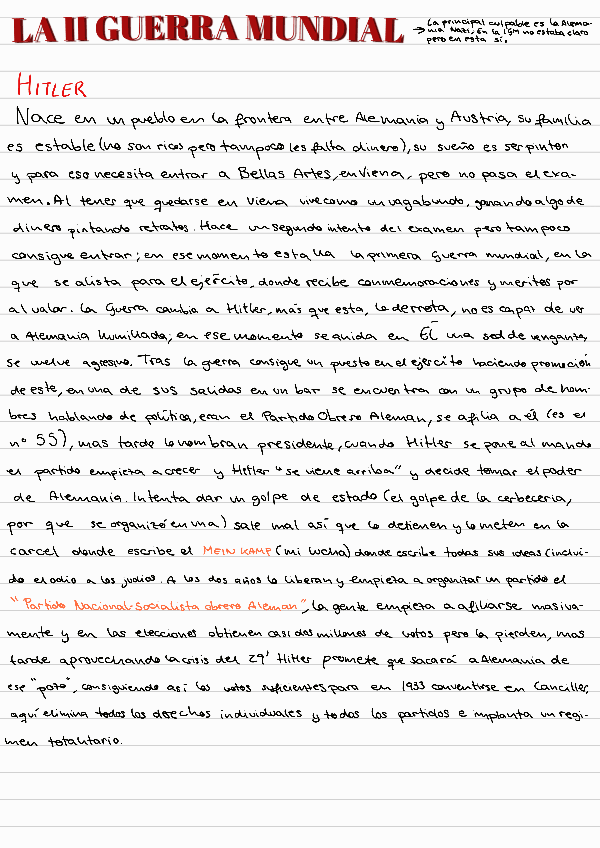 LA II GUERRA MUNDIAL
→ La principal culpable es la Alema-
nia Nazi, en la IGM no estaba claro
pero en esta sí.
HITLER
Nace en un pueblo en la frontera entre Alemania y Austria, su familia
es estable (no son ricos pero tampoco les falta dinero), su sueño es ser pintor
y para eso necesita entrar a Bellas Artes, en Viena, pero no pasa el exa-
men. Al tener que quedarse en Viena vive como un vagabundo, ganando algo de
dinero pintando retratos. Hace un segundo intento del examen pero tampoco
consigue entrar; en ese momento estalla la primera Guerra mundial, en la
que se alista para el ejército, donde recibe conmemoraciones y meritos por
al valor. La Guerra cambia a Hitler, más que esta, la derrota, no es capaz de ver
a Alemania humillada; en ese momento se anida en ÉL una sed de venganza,
se vuelve agresivo. Tras la guerra consigue un puesto en el ejercito haciendo promoción
de este, en una de sus salidas en un bar se encuentra con un grupo de hom-
bres hablando de política, eran el Partido Obrero Aleman, se afilia a él (es el
nº 55), mas tarde lo nombran presidente, cuando Hitler se pone al mando
el partido empieza a crecer y Hitler "se viene arriba" y decide tomar el poder
de Alemania. Intenta dar un golpe de estado (el golpe de la cerbeceria,
por que se organizó en una) sale mal así que lo detienen y lo meten en la
carcel donde escribe el MEIN KAMP (mi lucha) donde escribe todas sus ideas (inclui-
do el odio a los judios. A los dos años lo liberan y empieza a organizar un partido el
"Partido Nacional-Socialista obrero Aleman", la gente empieza a afiliarse masiva-
mente y en las elecciones obtienen casi dos millones de votos pero la pierden, mas
tarde aprovechando la crisis del 29' Hitler promete que sacará a Alemania de
ese "pozo", consiguiendo así los votos suficientes para en 1933 convertirse en Canciller,
aquí elimina todos los derechos individuales y todos los partidos e implanta un regi-
men totalitario.